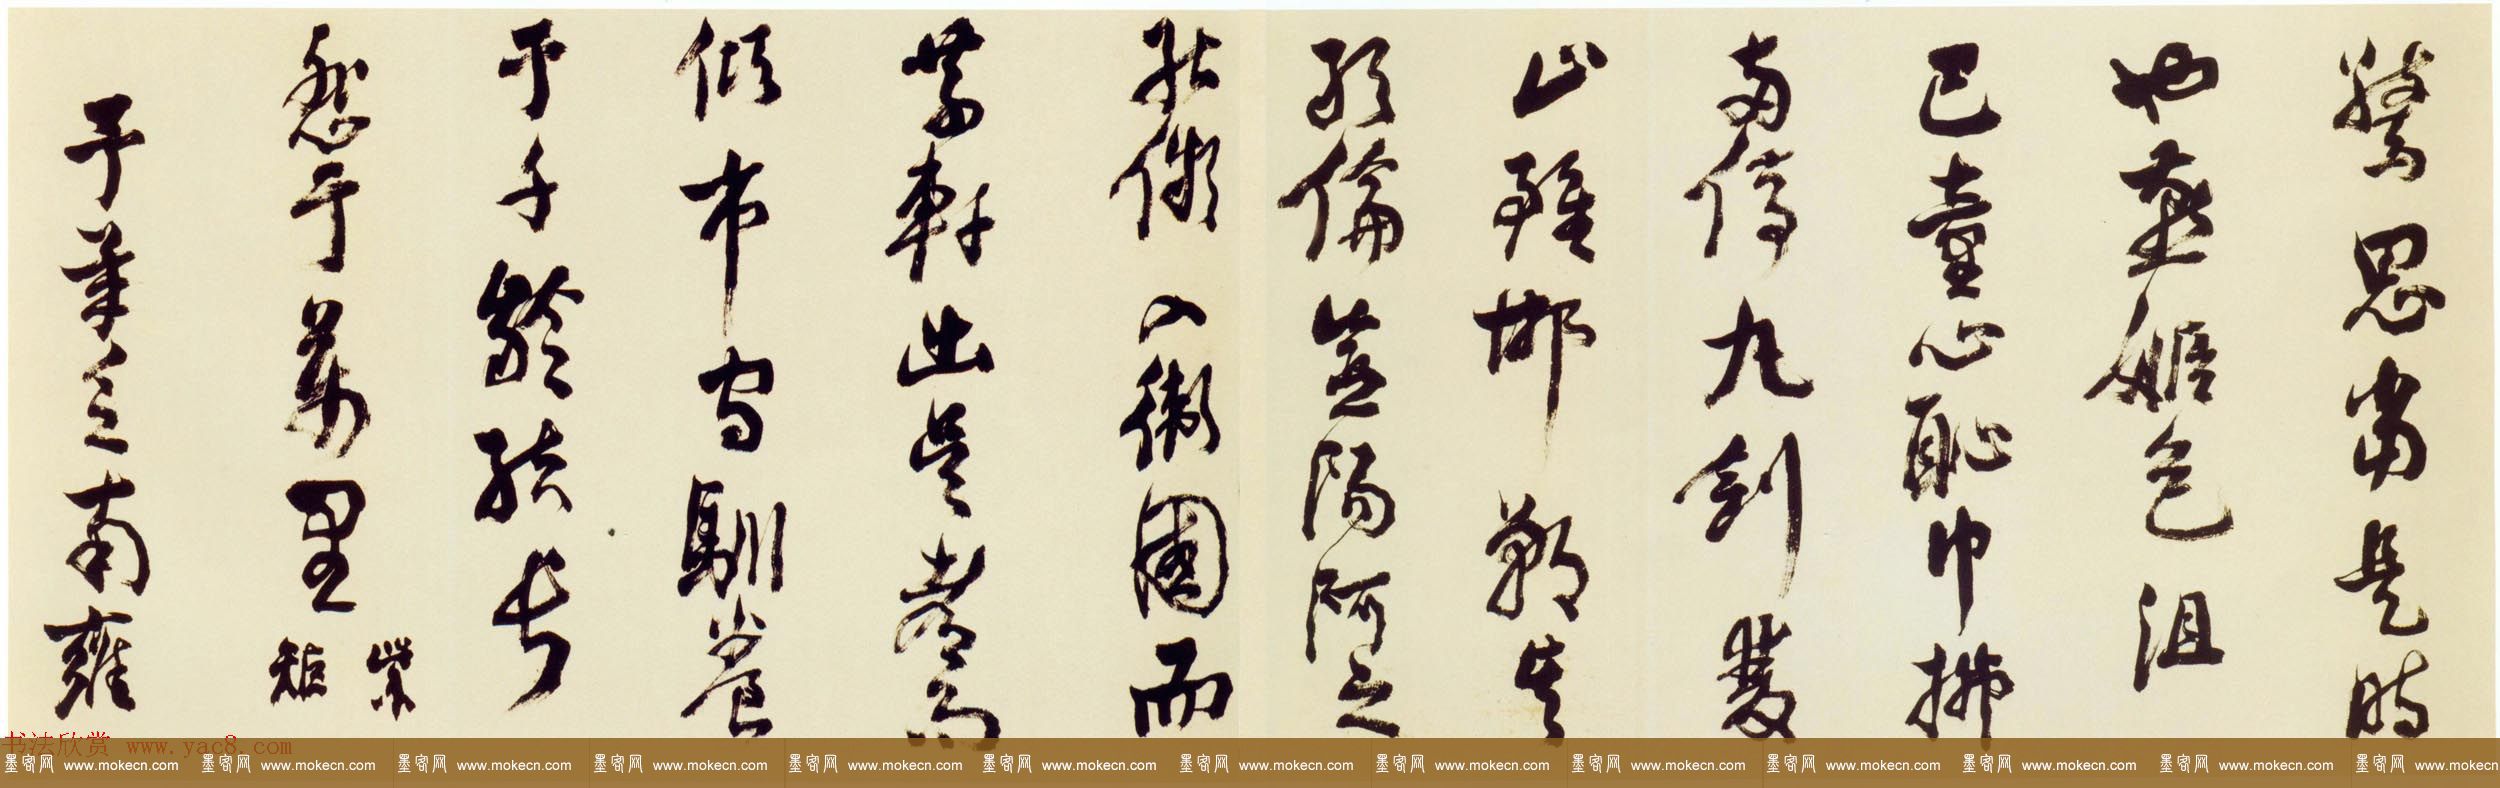 驚思當是時
也燕姬色沮
巴童心恥巾拂
兩停丸劍雙
止雖邯鄲其
敢倫豈陽阿之
能儗入衛國而
乘軒出吴都而
傾市守馴養
于千齡結長
悲于萬里
紫
子筆之南雍
书法欣赏 www.yac8.com
墨客网 www.mokecn.com 墨客网 www.mokecn.com 墨客网 www.mokecn.com 墨客网 www.mokecn.com 墨客网 www.mokecn.com 墨客网 www.mokecn.com 墨客网 www.mokecn.com 墨客网 www.mokecn.com 墨客网 www.mokecn.com 墨客网 www.mokecn.com 墨客网 www.mokecn.com 墨客网 www.mokecn.com 墨客网 www.mokecn.com